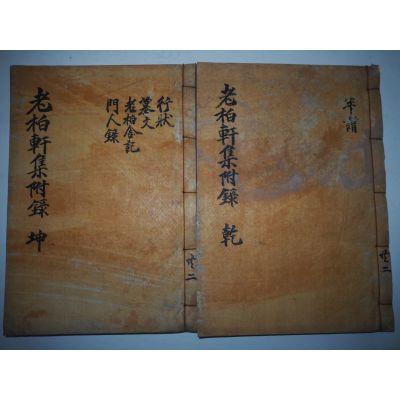 共二
年譜
老柏軒集附錄 乾
共二
行狀
墓文
老柏舍記
門人錄
老柏軒集附錄 坤